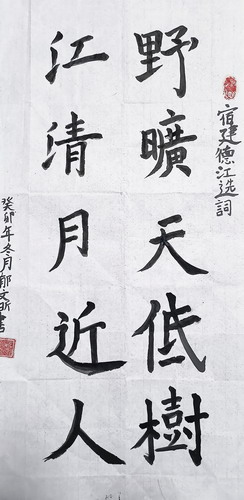 宿建德江选詞
野曠天低樹
江清月近人
癸卯年冬月郁文昕書